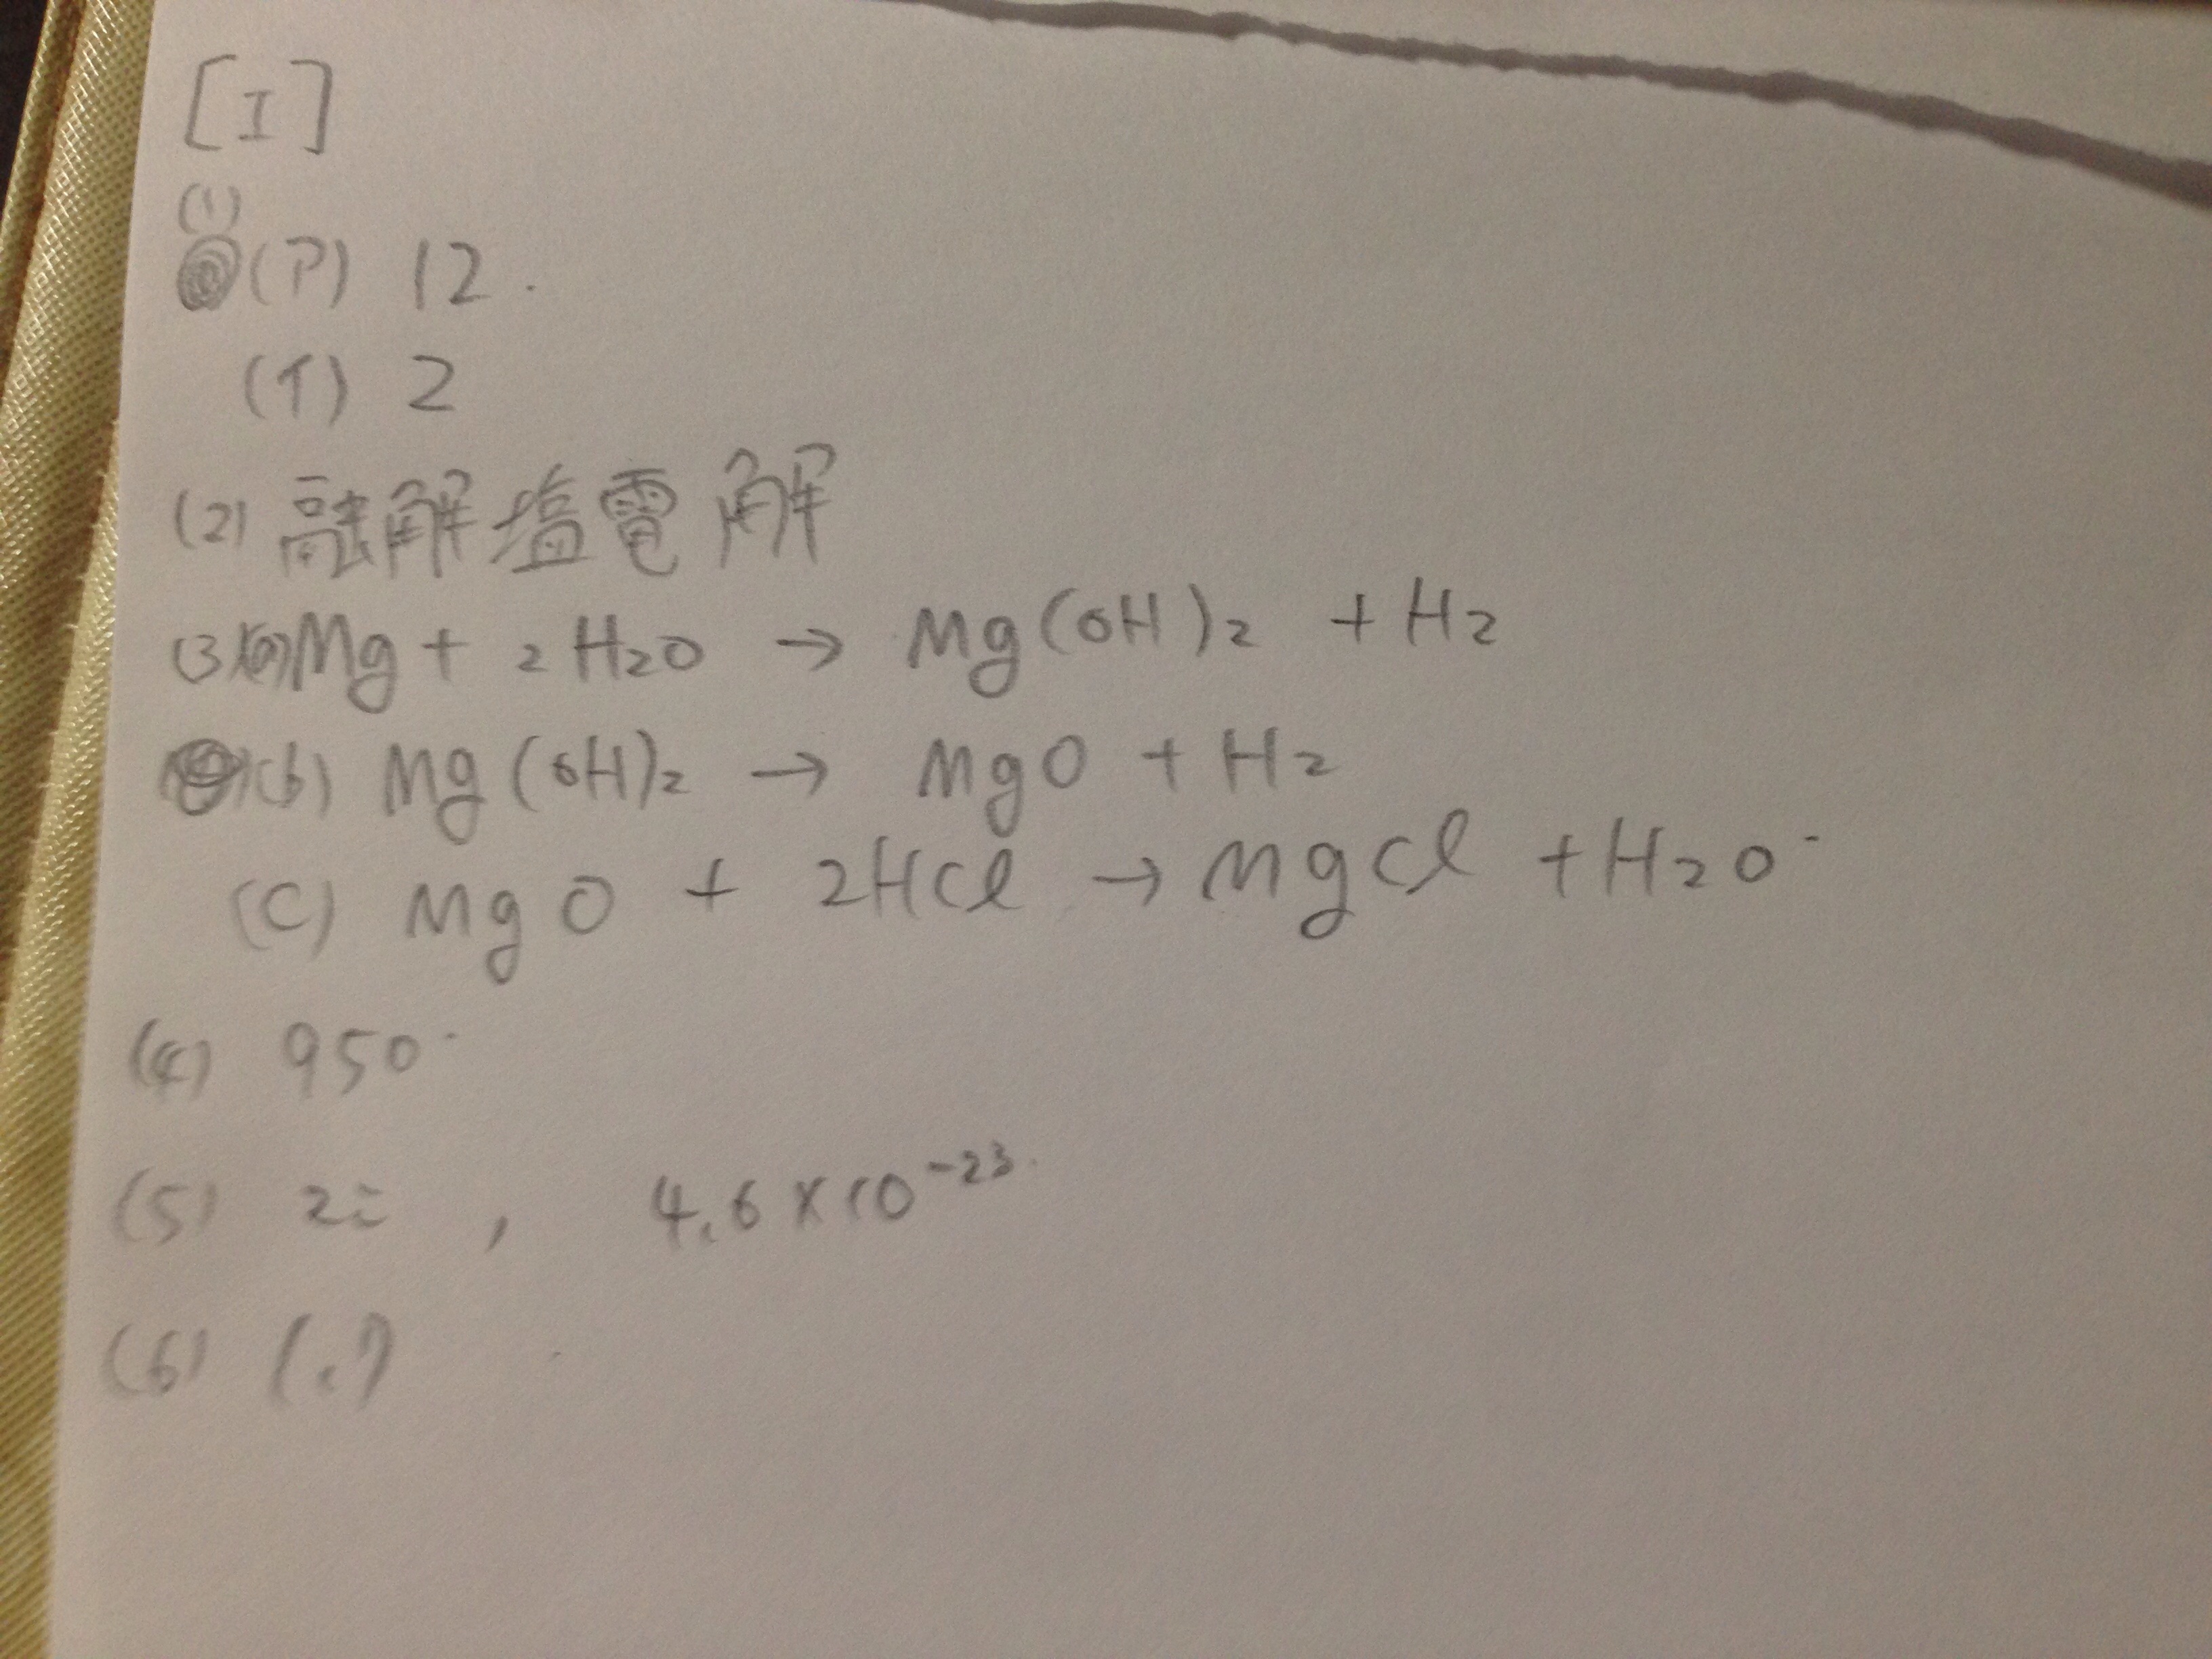 [I]
(1)
(ア) 12.
(イ) 2
(2) 融解塩電解
(3)(a) Mg + 2H₂O → Mg(OH)₂ + H₂
(b) Mg(OH)₂ → MgO + H₂
(C) MgO + 2HCl → MgCl + H₂O
(4) 950
(5) , 4.6×10⁻²³
(6) 1.7